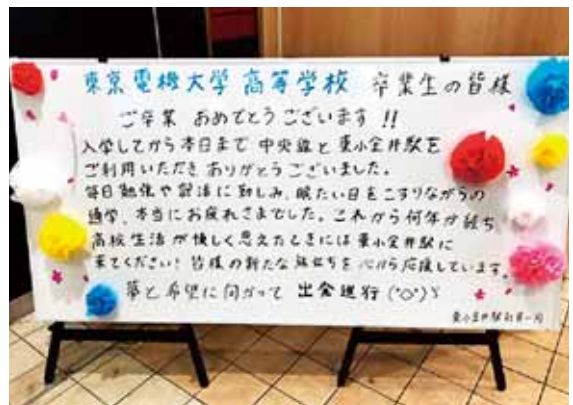 東京電機大学高等学校 卒業生の皆様
ご卒業 おめでとうございます!!
入学してから本日まで 中央線と東小金井駅を
ご利用いただき ありがとうございました。
毎日勉強や部活に勤しみ、眠たい目をこすりながらの
通学、本当にお疲れさまでした。これから何年か経ち
高校生活が懐しく思えたときには東小金井駅に
来てください! 皆様の新たな旅立ちを心から応援しています。
夢と希望に向かって 出発進行(^○^)ゞ
東小金井駅社員一同